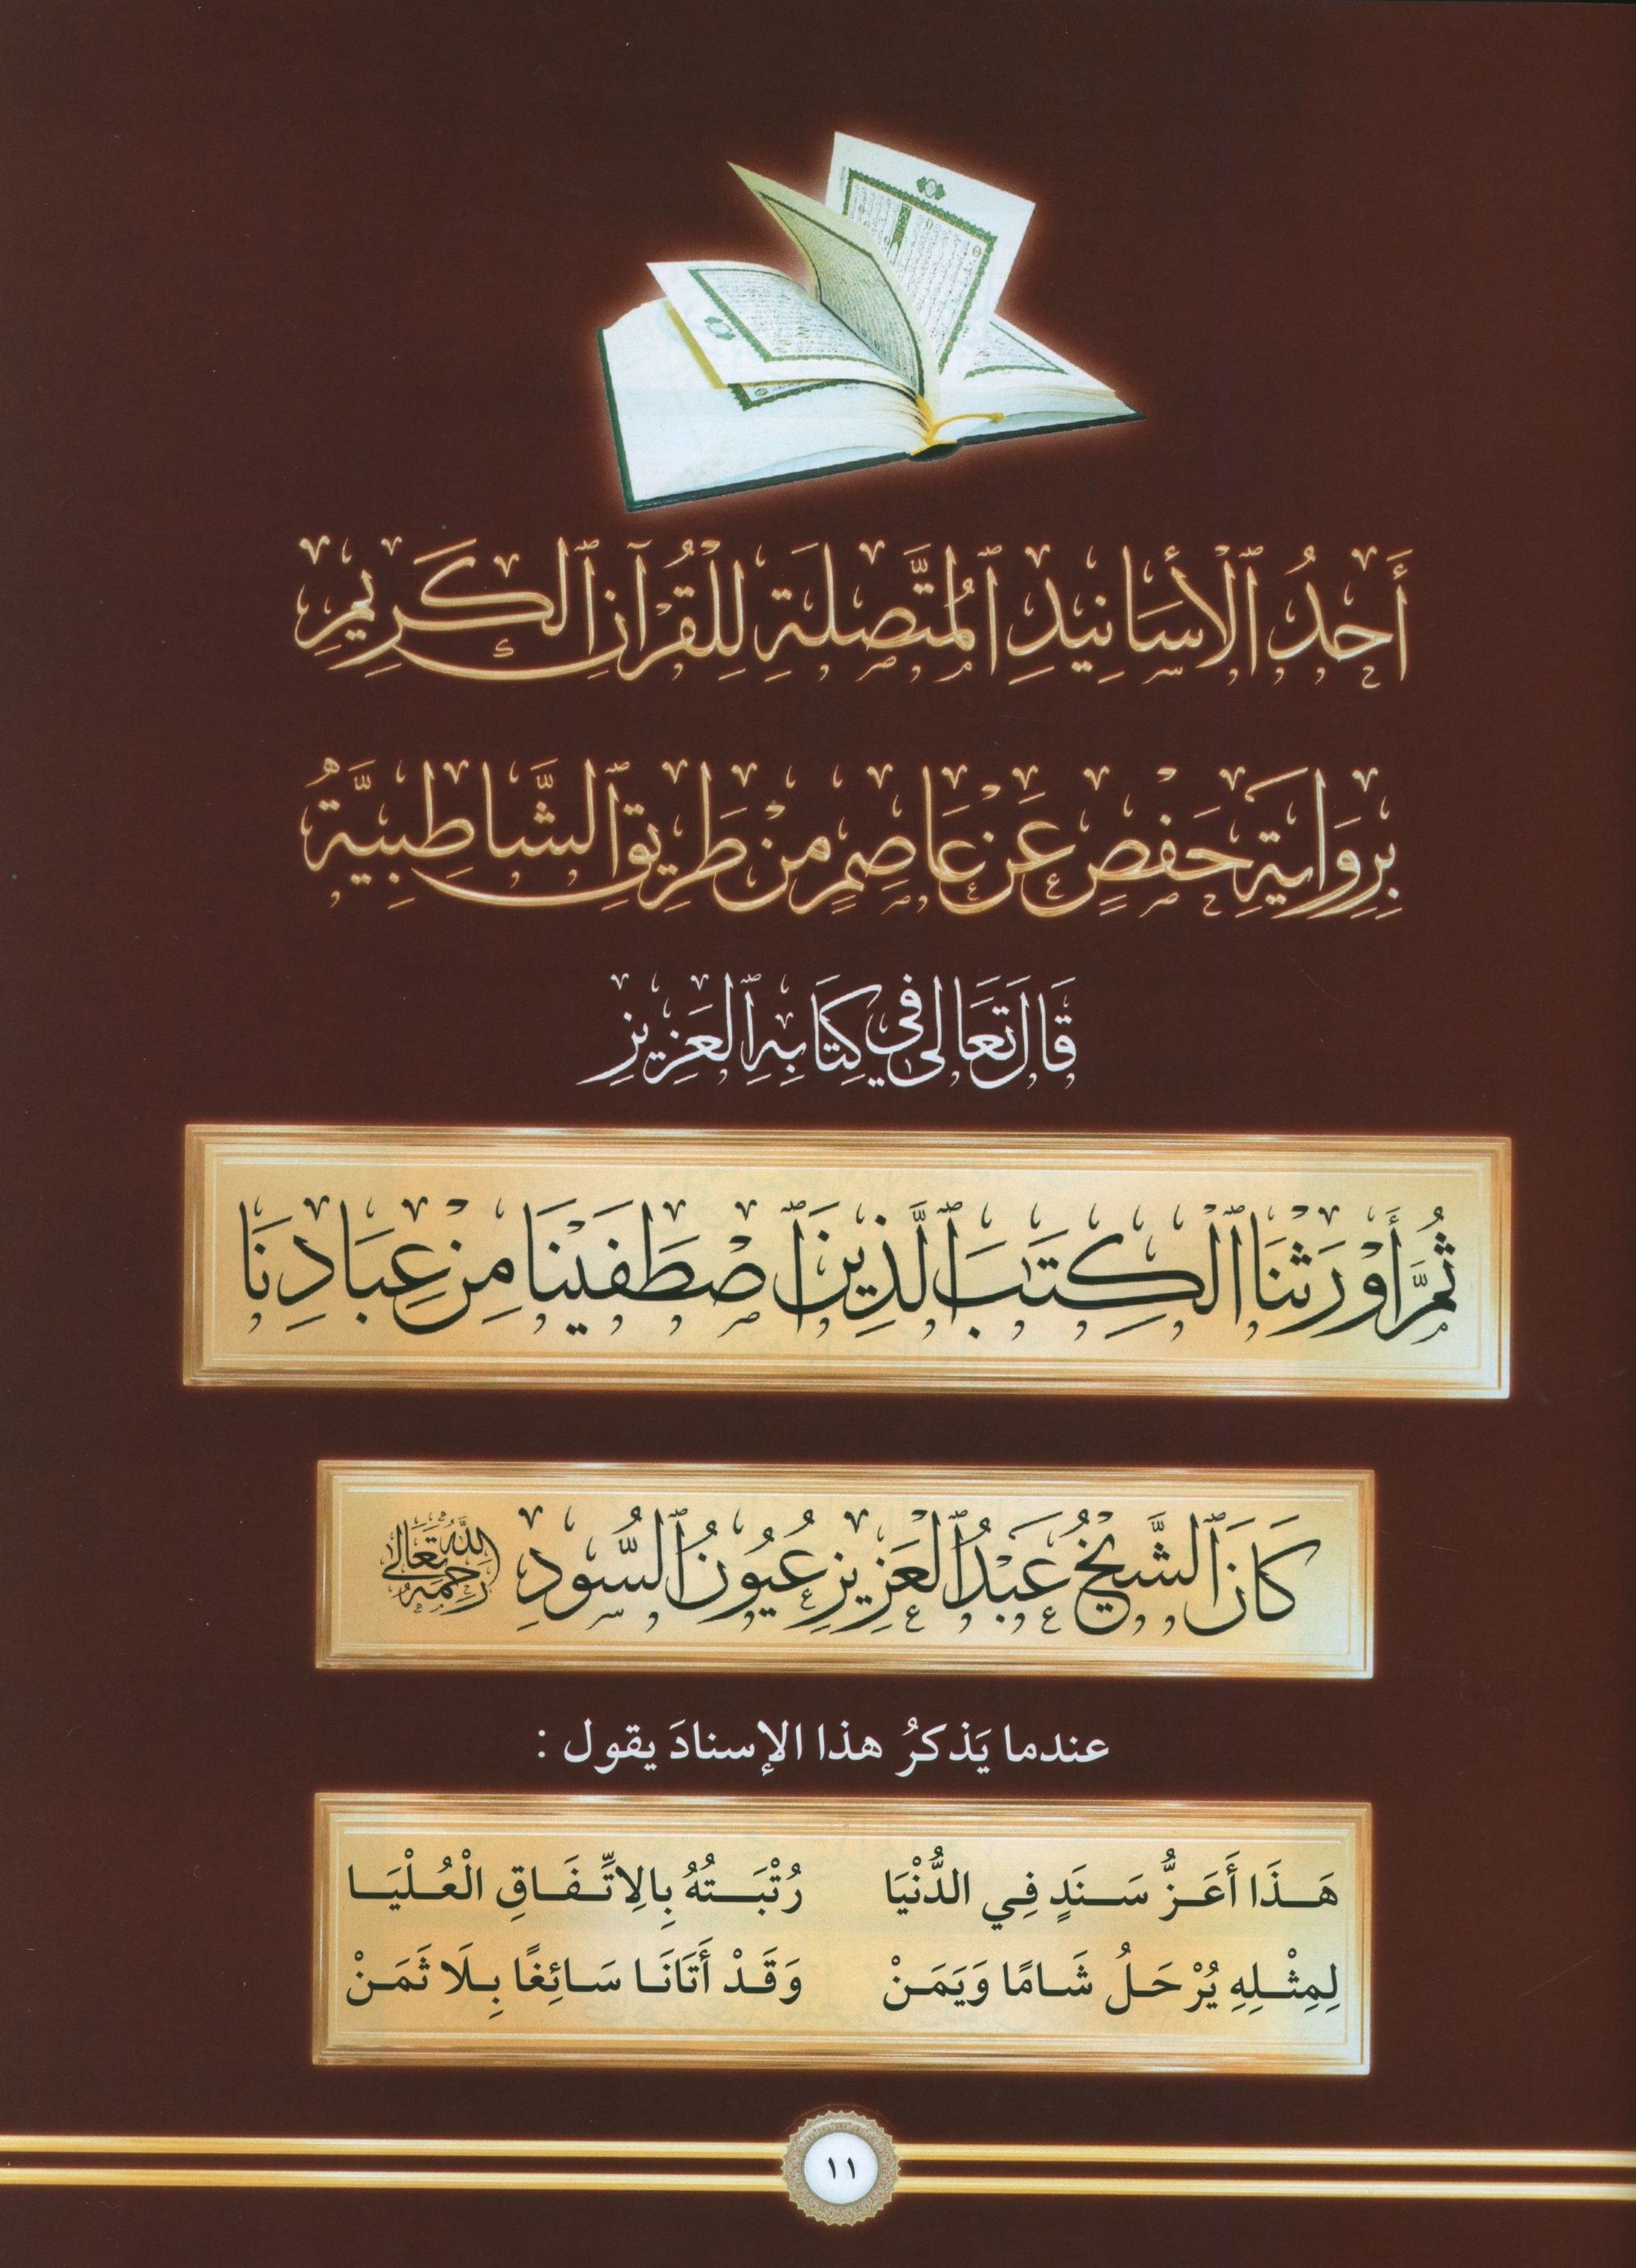 أَحَدُ ٱلْأَسَانِيدِ ٱلْمُتَّصِلَةِ لِلْقُرْآنِ ٱلْكَرِيمِ
بِرِوَايَةِ حَفْصٍ عَنْ عَاصِمٍ مِنْ طَرِيقِ ٱلشَّاطِبِيَّةِ
قَالَ تَعَالَى فِي كِتَابِهِ ٱلْعَزِيزِ
ثُمَّ أَوْرَثْنَا ٱلْكِتَٰبَ ٱلَّذِينَ ٱصْطَفَيْنَا مِنْ عِبَادِنَا
كَانَ ٱلشَّيْخُ عَبْدُ ٱلْعَزِيزِ عُيُونُ ٱلسُّودِ رَحِمَهُ اللَّهُ تَعَالَى
عندما يَذكرُ هذا الإسنادَ يقول :
هَـذَا أَعَـزُّ سَـنَدٍ فِـي الدُّنْيَا رُتْبَـتُهُ بِالِاتِّـفَـاقِ الْعُـلْيَـا
لِمِثْـلِهِ يُرْحَـلُ شَـامًا وَيَمَـنْ وَقَـدْ أَتَانَـا سَـائِغًا بِـلَا ثَمَـنْ
١١